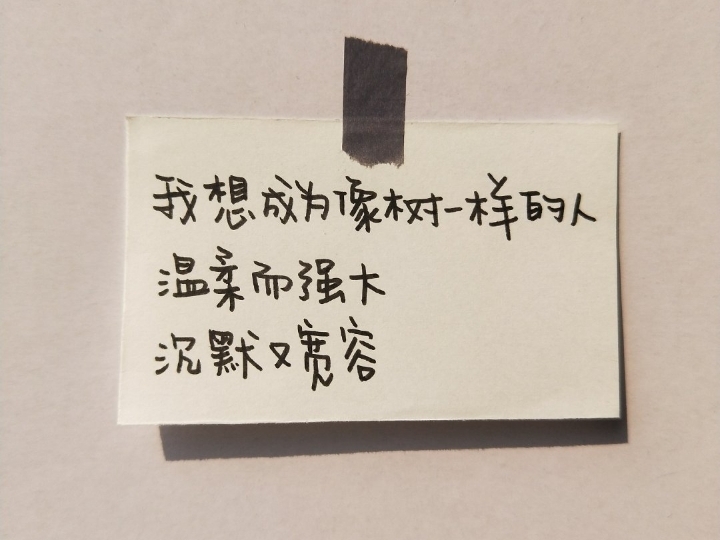 我想成为像树一样的人
温柔而强大
沉默又宽容